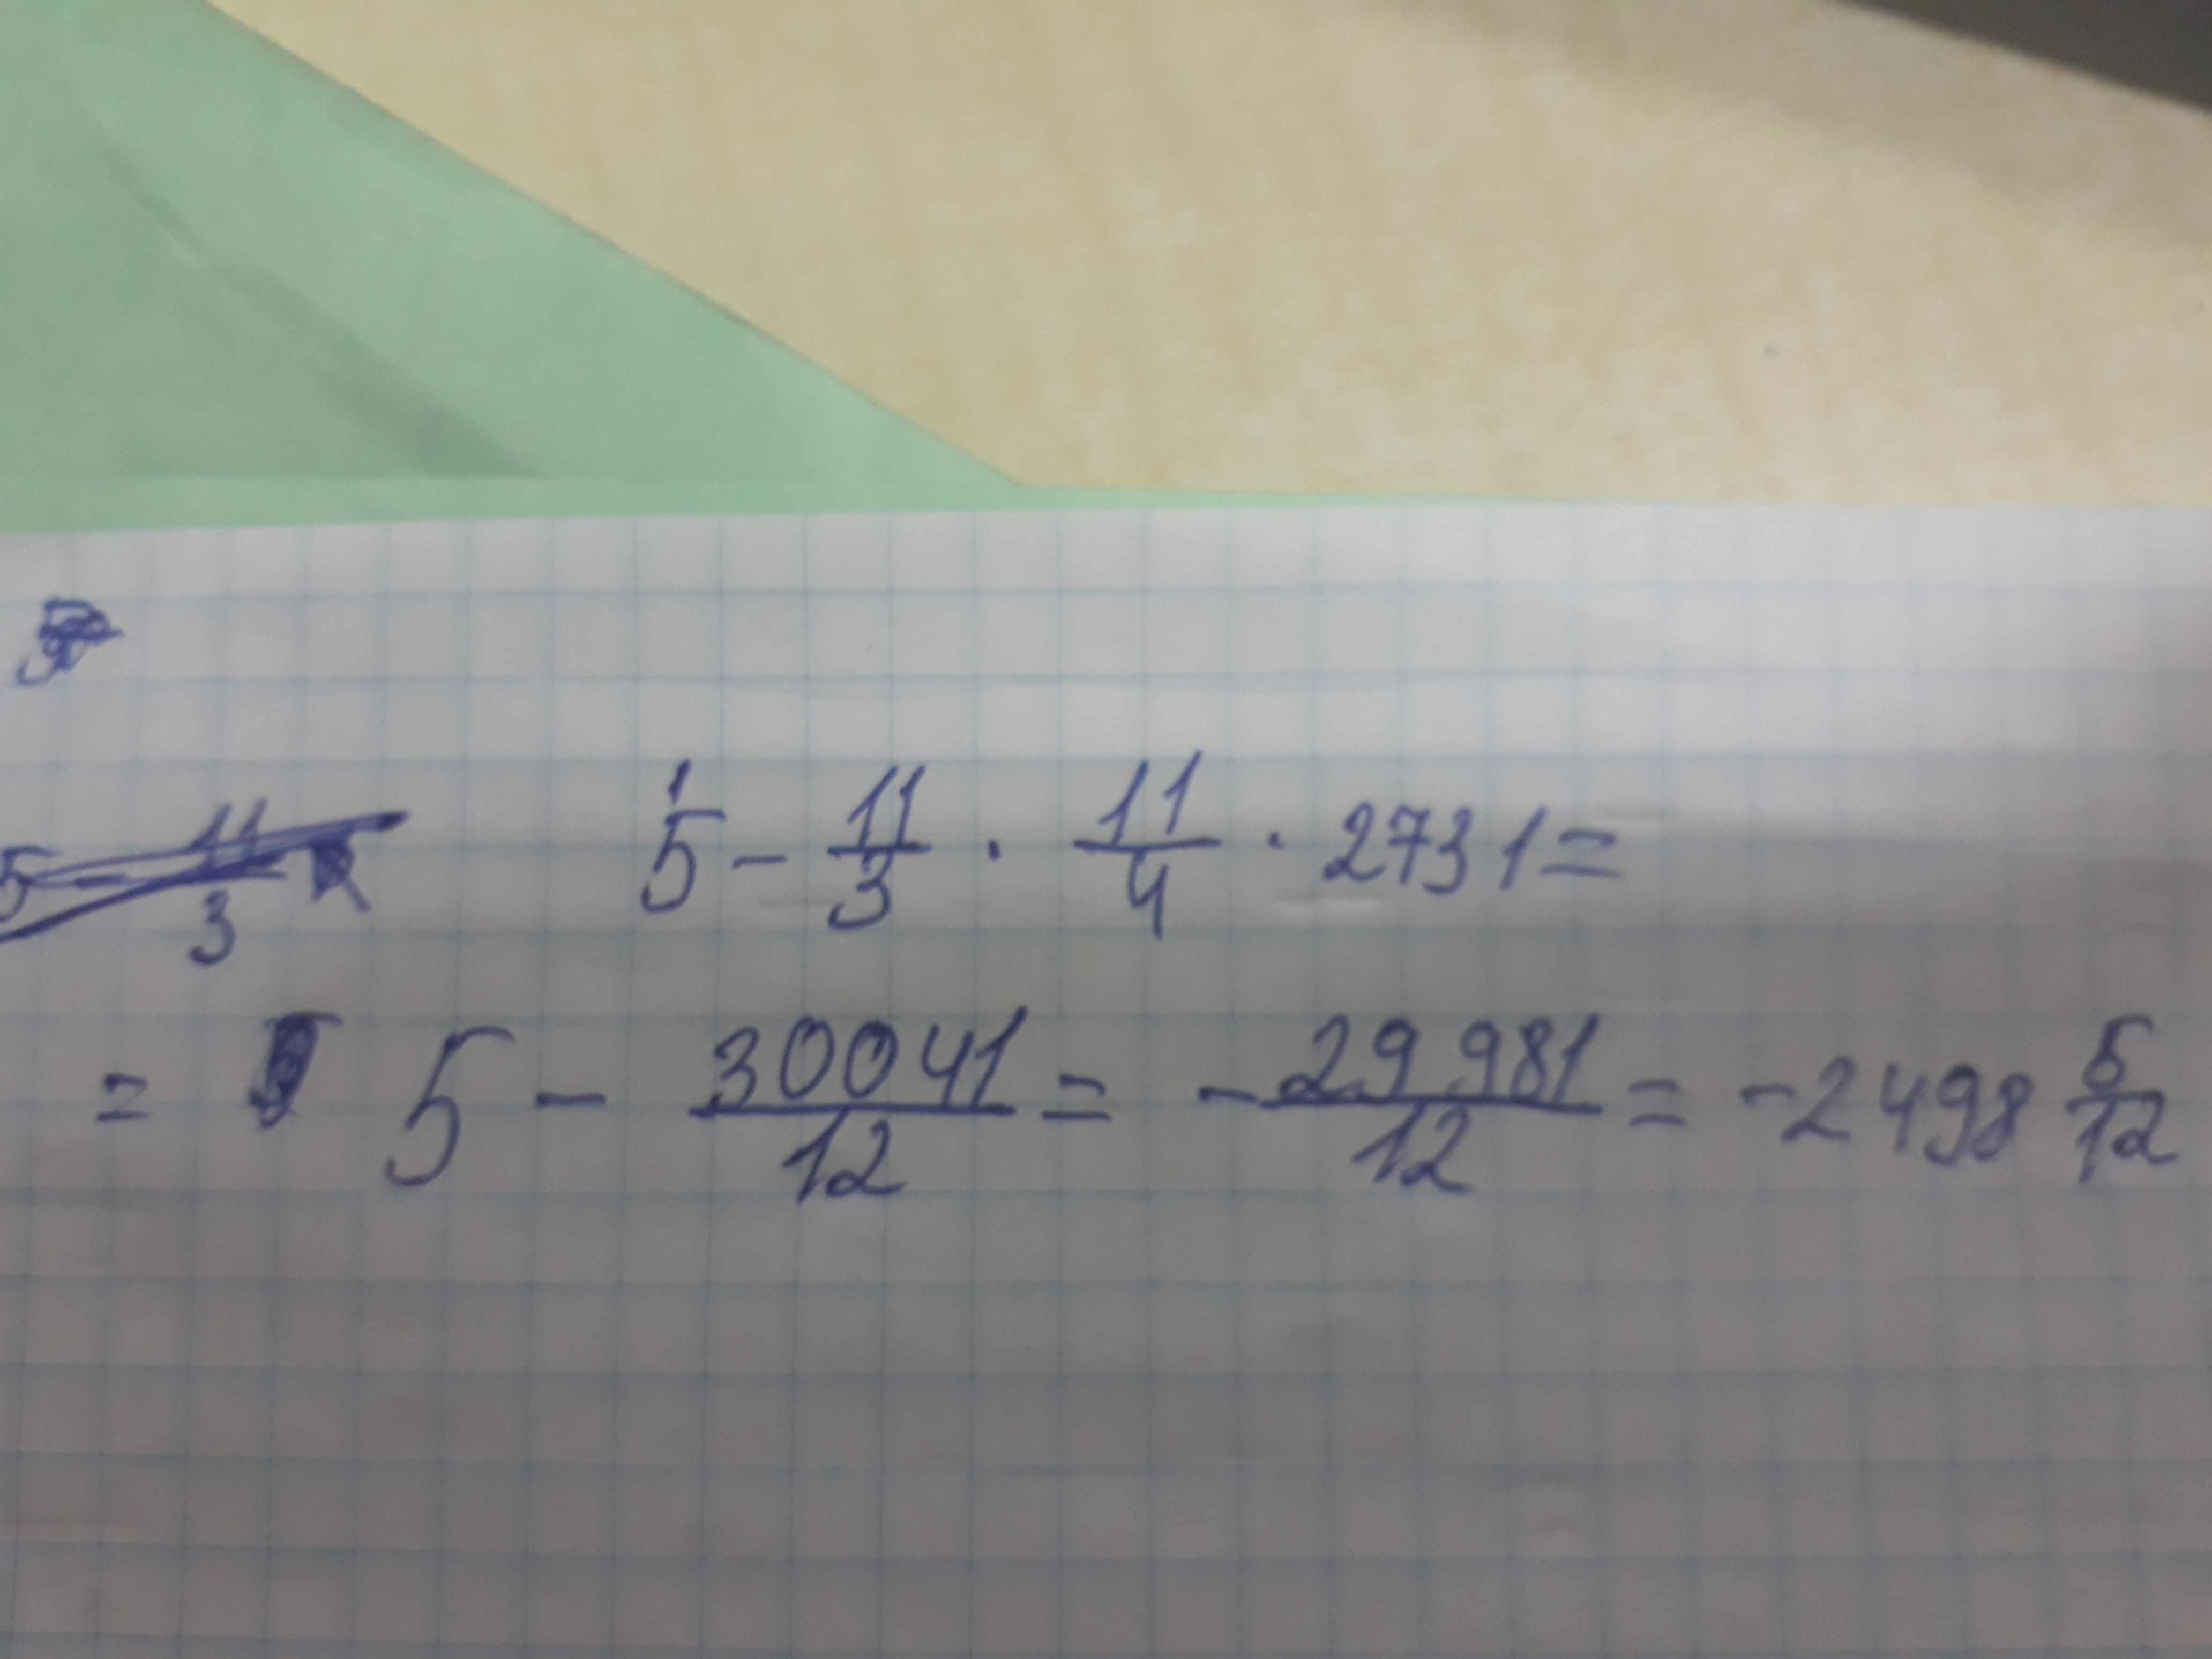 5 - 11/3 · 11/4 · 2731 =
= 5 - 30041/12 = - 29981/12 = - 2498 5/12